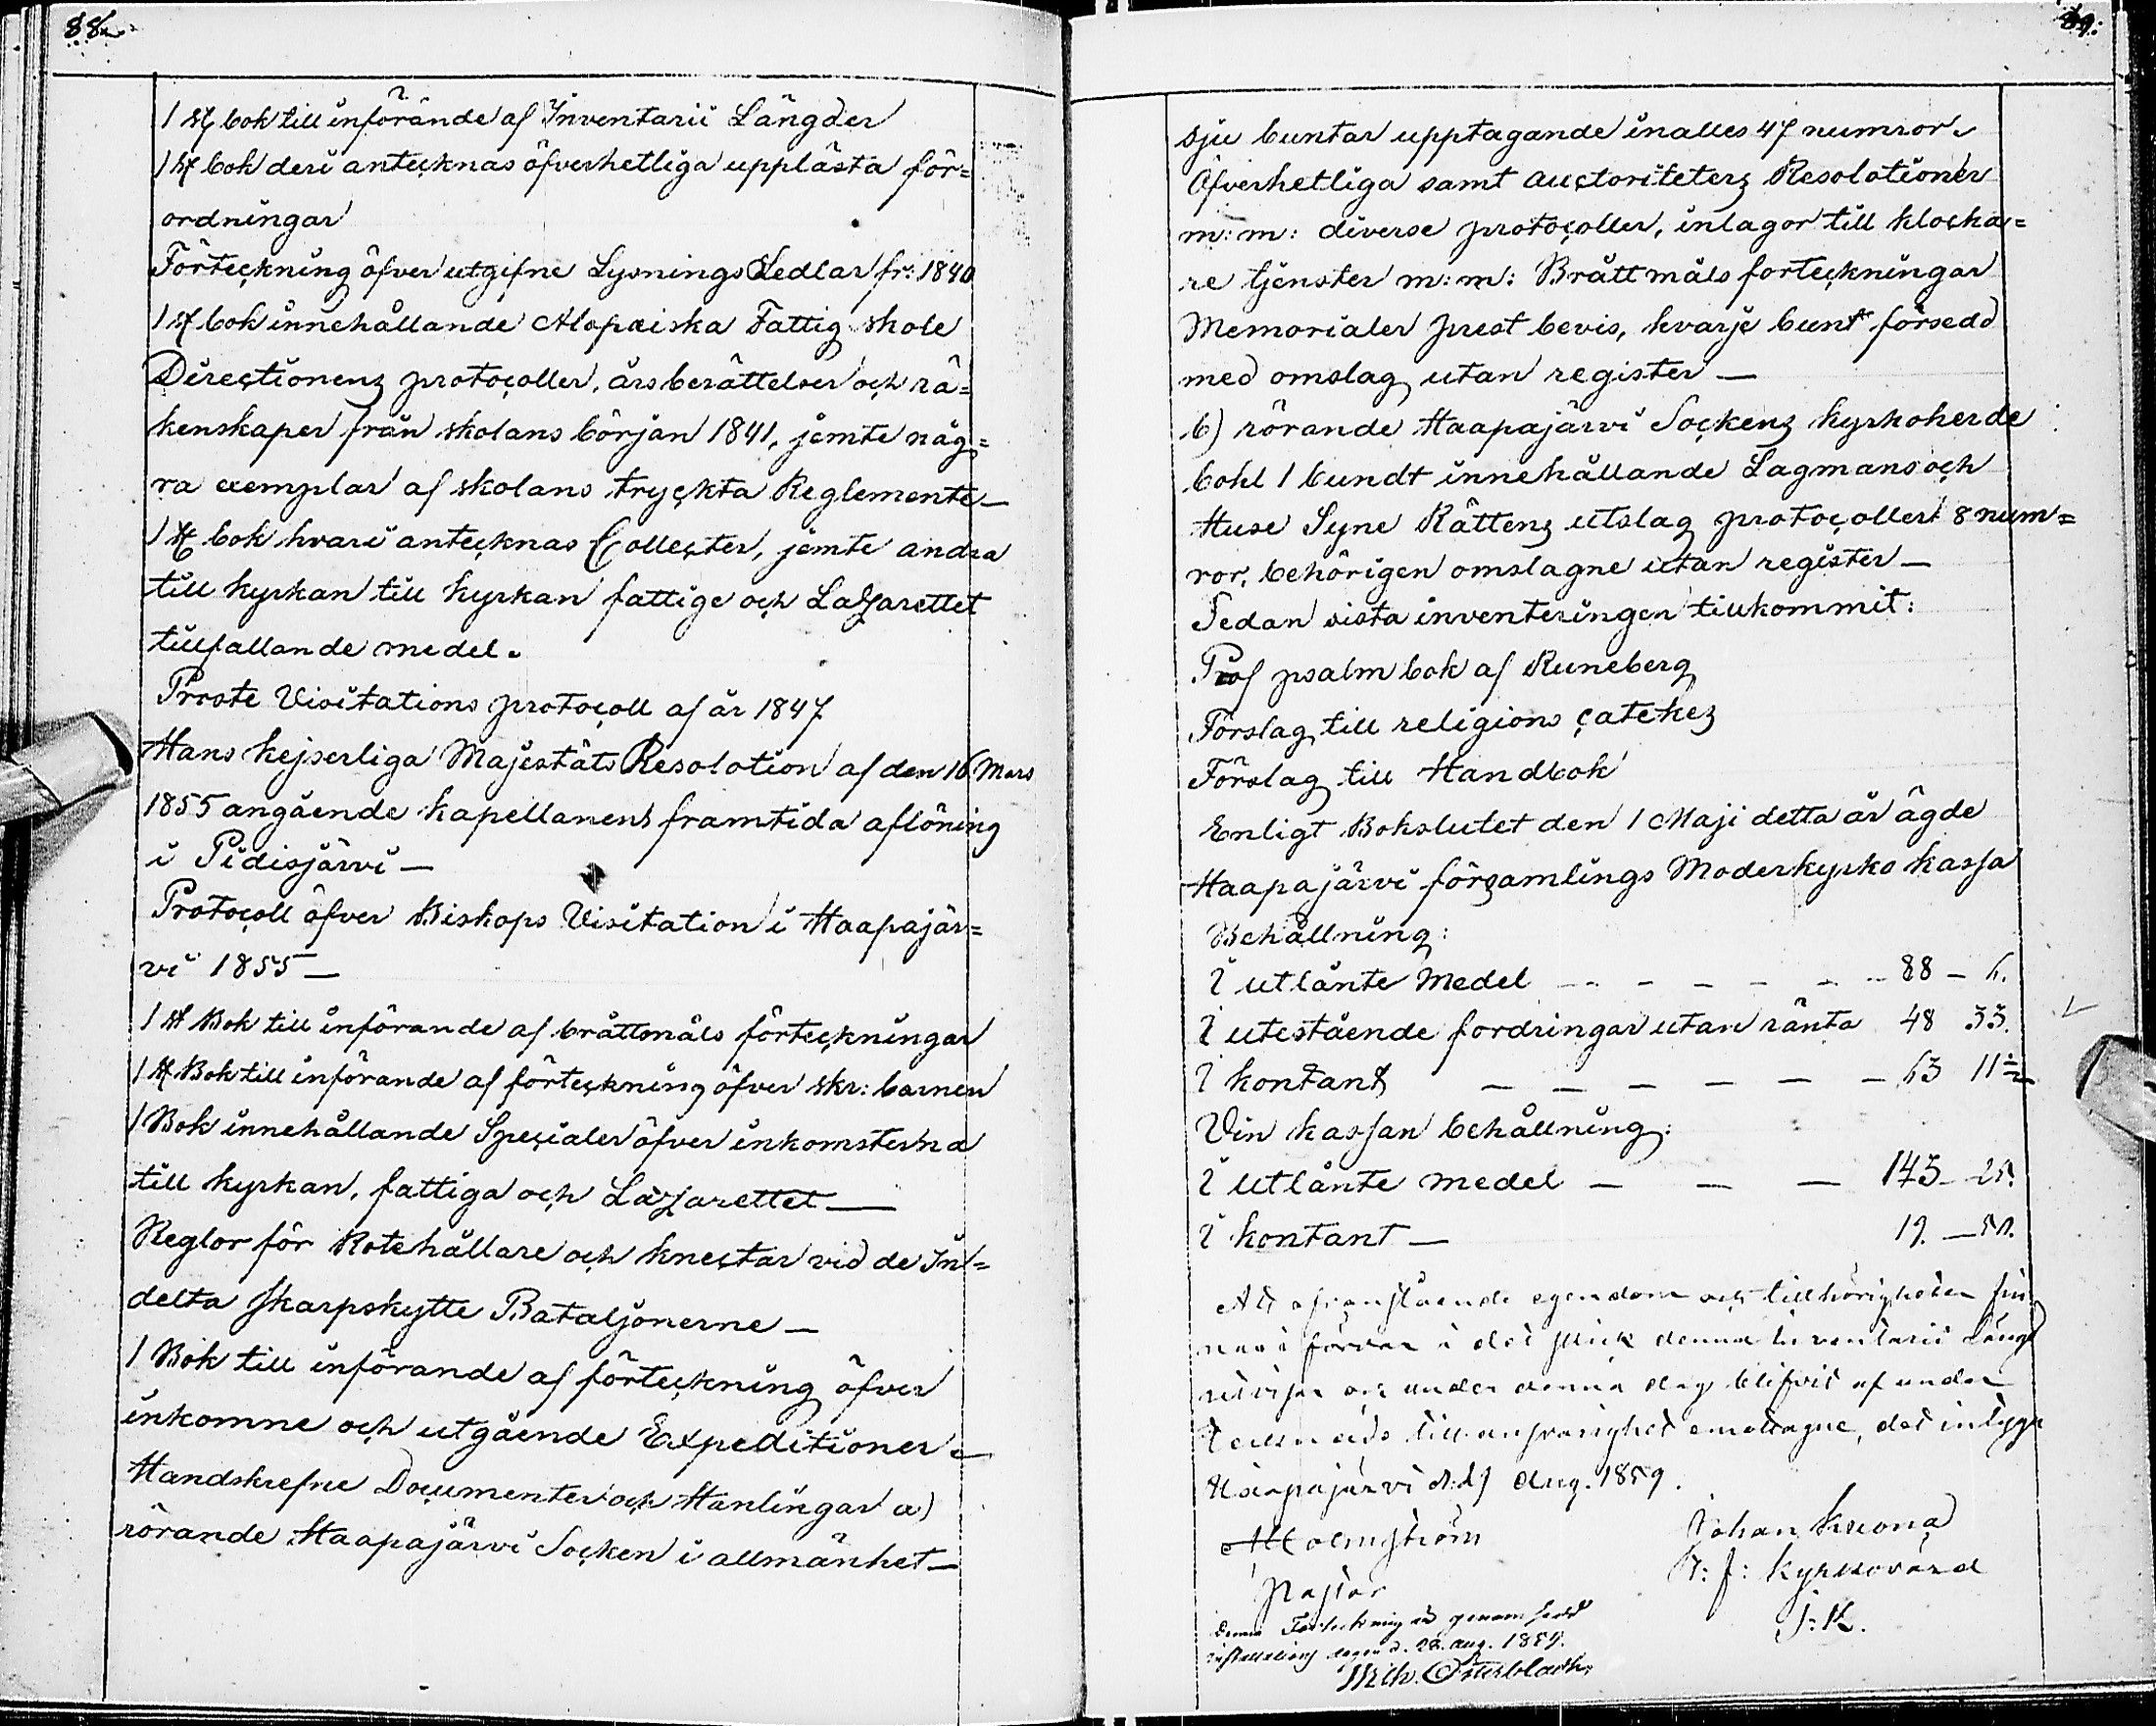 88.
1 st bok till införande af Inventarii Längder
1 st bok deri antecknas öfverhetliga upplästa för=
ordningar
Förteckning öfver utgifne Lysnings Sedlar fr: 1840
1 st bok innehållande Alopæiska Fattig skole
Directionens protocoller, årsberättelser och rä=
kenskaper från skolans början 1841, jemte någ=
ra exemplar af skolans tryckta Reglemente —
1 st bok hvari antecknas Collecter, jemte andra
till kyrkan till kyrkan fattige och Lazarettet
tillfallande medel.
Proste Visitations protocoll af år 1847
Hans Kejserliga Majestäts Resolution af den 16 Mars
1855 angående kapellanens framtida aflöning
i Pidisjärvi —
Protocoll öfver Biskops Visitation i Haapajär=
vi 1855 —
1 st Bok till införande af bråttmåls förteckningar
1 st Bok till införande af förteckning öfver skr: barnen
1 Bok innehållande Specialer öfver inkomsterna
till kyrkan, fattiga och Lazarettet —
Reglor för Rotehållare och knectar vid de In=
delta Skarpskytte Bataljonerne —
1 Bok till införande af förteckning öfver
inkomne och utgående Expeditioner —
Handskrefne Documenter och Hanlingar a)
rörande Haapajärvi Socken i allmänhet —
89.
sju buntar upptagande inalles 47 numror.
Öfverhetliga samt auctoriteters Resolotioner
m:m: diverse protocoller, inlagor till klocka=
re tjenster m:m: Bråttmåls forteckningar
Memorialer prest bevis, hvarje bunt försedd
med omslag utan register —
b) rörande Haapajärvi Sockens kyrkoherde
bohl 1 bundt innehållande Lagmans och
Huse Syne Rättens utslag protocoller 8 num=
ror, behörigen omslagne utan register —
Sedan sista inventeringen tillkommit:
Prof psalm bok af Runeberg
Förslag till religions catekes
Förslag till Handbok
Enligt Bokslutet den 1 Maji detta år ägde
Haapajärvi församlings Moderkyrko kassa
Behållning:
I utlånte Medel — — — — — 88 — 6.
I utestående fordringar utan ränta 48 33.
I kontant — — — — — — 63 11½
Vin kassan behållning:
I utlånte medel — — — 143 — 25.
I kontant — 19. — 50.
Att ofvanstående egendom och tillhörigheter fin
nas i förvar i det skick denna Inventarii Längd
utvisar och under denna dag blifvit af under
tecknads till ansvarighet emottagne, det intyga
Haapajärvi d. Aug. 1859.
Holmström Johan Krona
Pastor T: f: Kyrkovärd
J: K.
Denna Förteckning är genomsedd
d. 22. Aug. 1859.
Österbladh